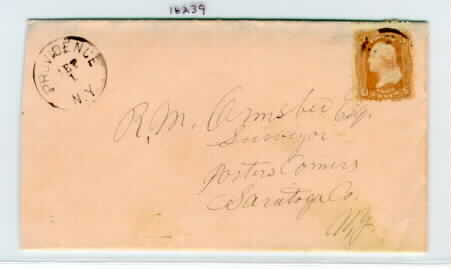 18239
PROVIDENCE
SEP
1
N.Y.
R. M. Armsbee Esq.
Surveyor
Porters Corners
Saratoga Co.
N.Y.